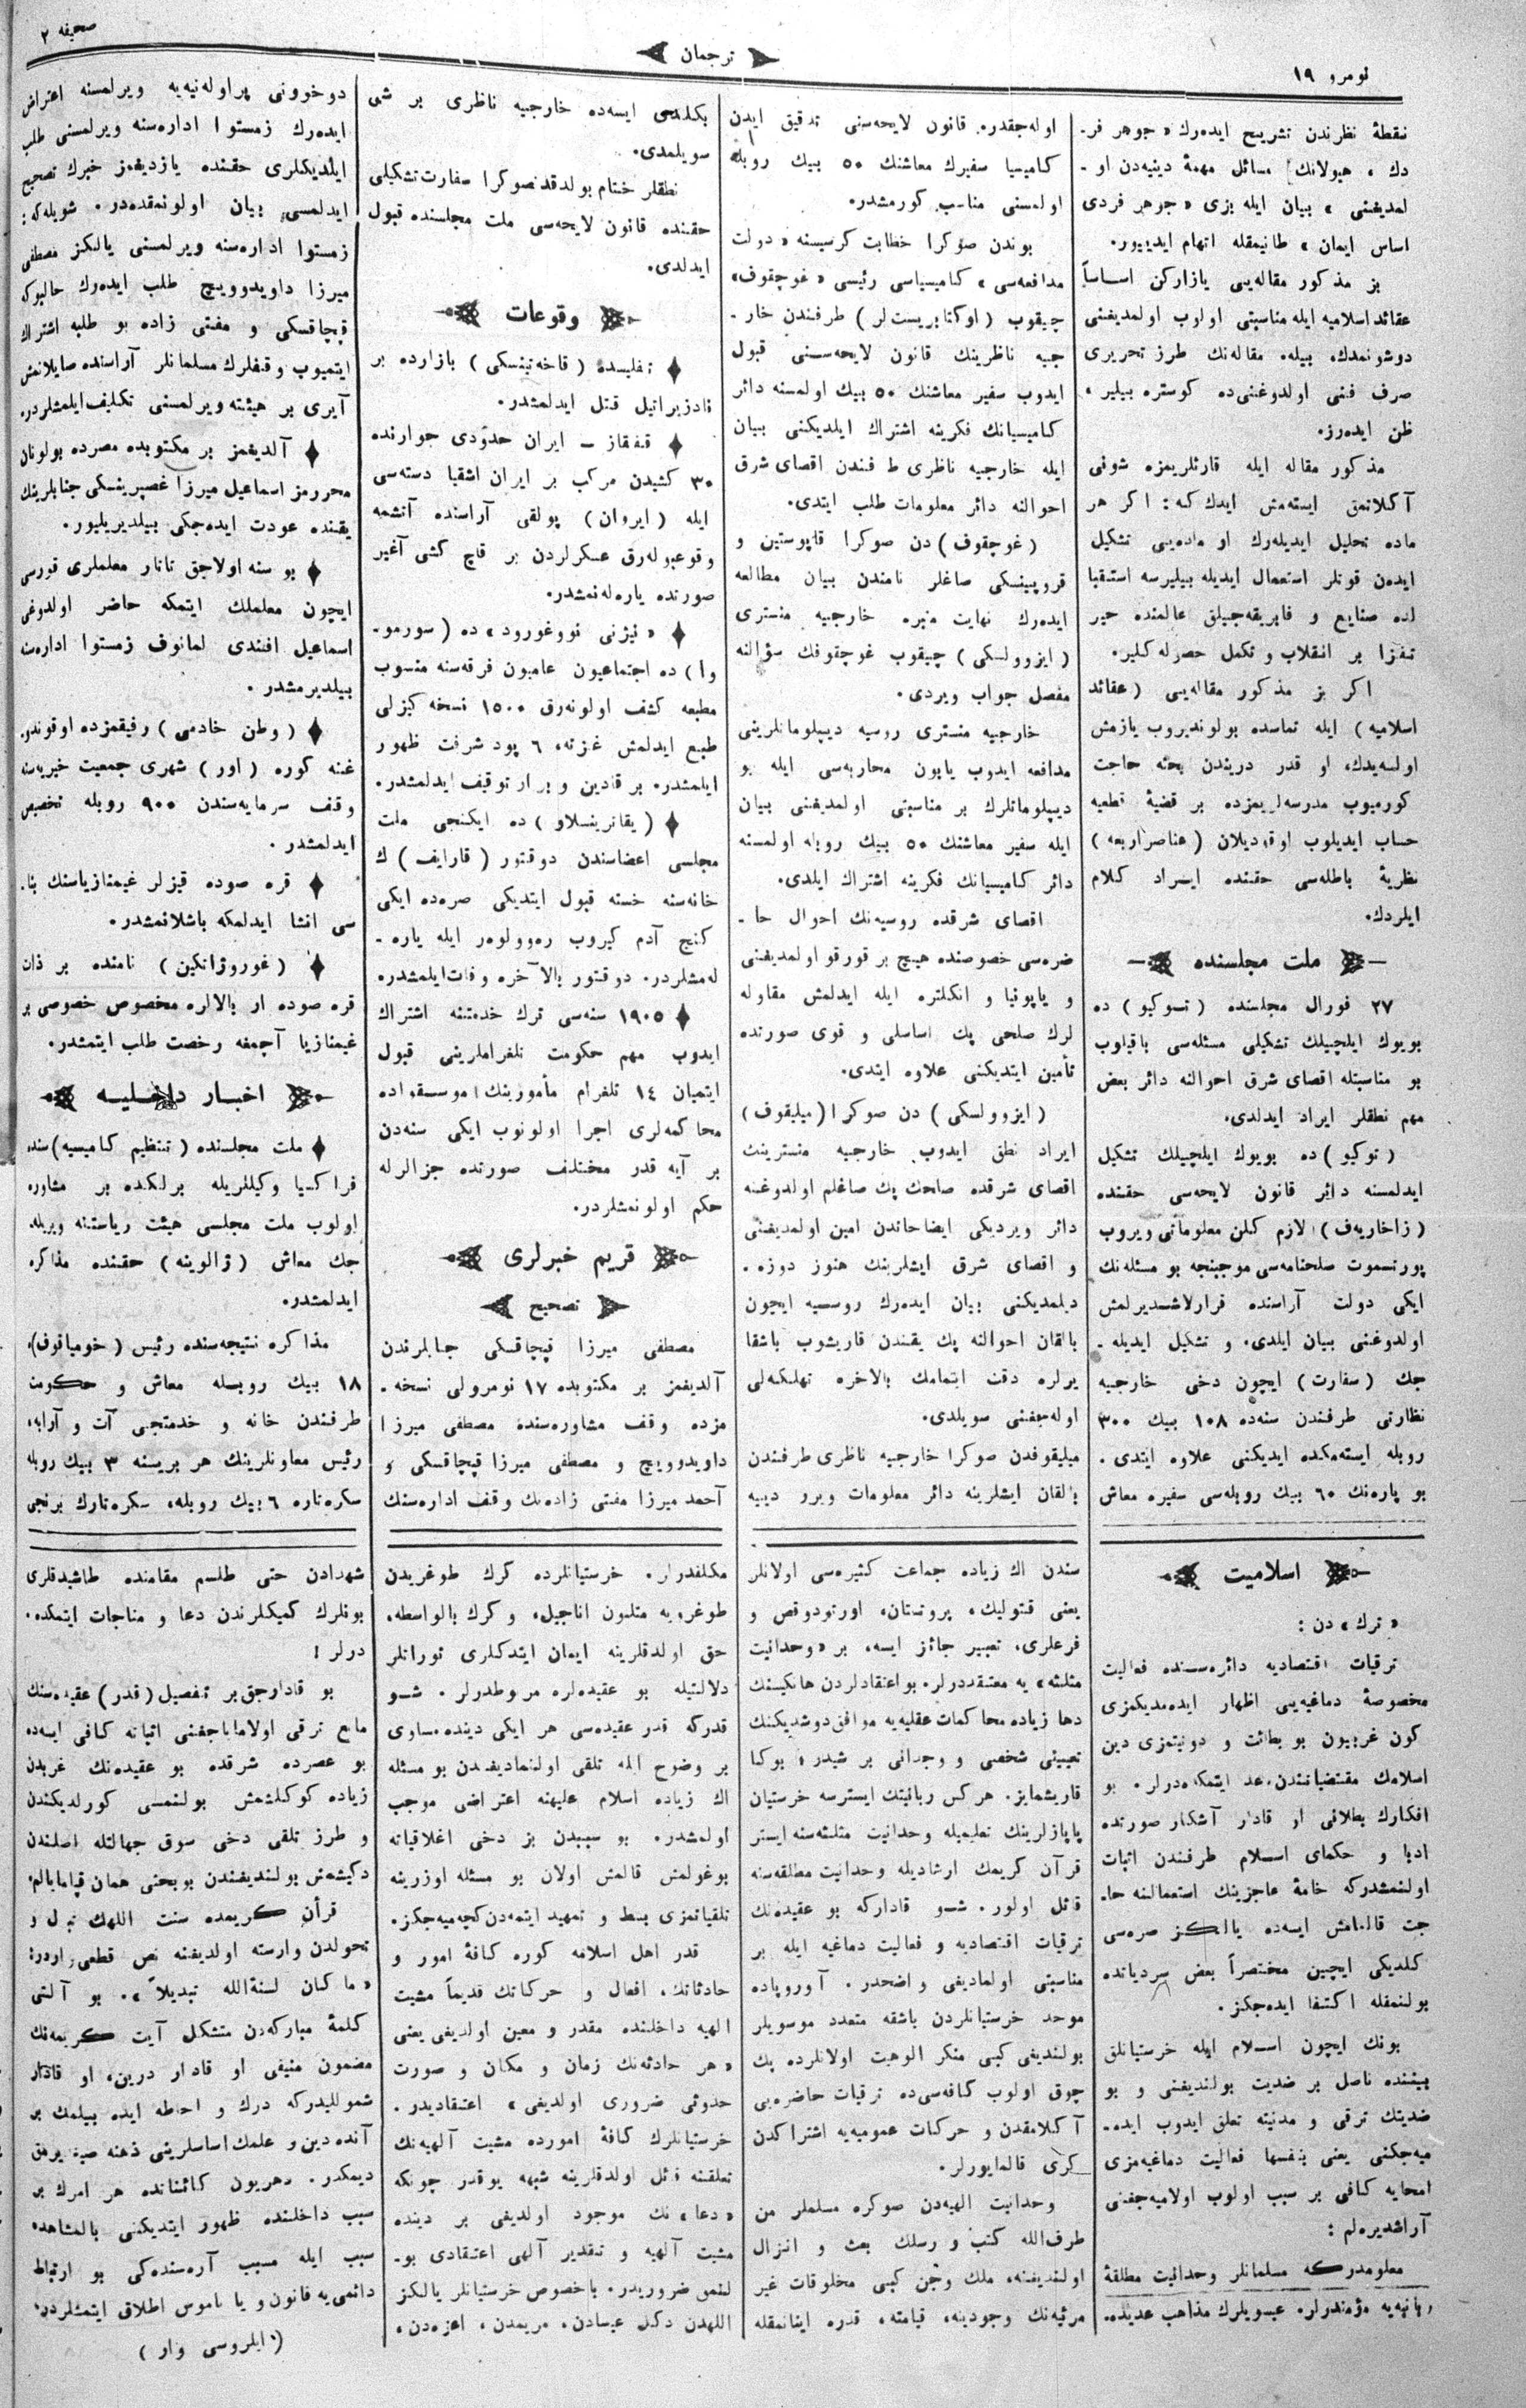 نومرو ١٩
ترجمان
صحيفه ٢
نقطۀ نظرندن تشريح ايده‌رك «جوهر فر-
دك، هيولانك] مسائل مهمۀ دينيه‌دن او-
لمديغنى» بيان ايله بزى «جوهر فردى
اساس ايمان» طانيمقله اتهام ايدييور.
بز مذكور مقاله‌يى يازاركن اساساً
عقائد اسلاميه ايله مناسبتى اولوب اولمديغنى
دوشونمدك بيله. مقاله‌نك طرز تحريرى
صرف فنى اولدوغنى‌ده كوستره بيلير،
ظن ايده‌رز.
مذكور مقاله ايله قارئلريمزه شونى
آكلاتمق ايسته‌مش ايدك كه: اكر هر
ماده تحليل ايديله‌رك او ماده‌يى تشكيل
ايدەن قوتلر استعمال ايديله بيليرسه استقبا
لده صنايع و فابريقه‌جيلق عالمنده حير
تفزا بر انقلاب و تكمل حصوله كلير.
اكر بز مذكور مقاله‌يى (عقائد
اسلاميه) ايله تماسده بولونديروب يازمش
اولسه‌يدك، او قدر دريندن بحثه حاجت
كورميوب مدرسه‌لريمزده بر قضيۀ قطعيه
حساب ايديلوب اوقوديلان (عناصر اربعه)
نظريۀ باطله‌سى حقنده ايراد كلام
ايلردك.
ملت مجلسنده
٢٧ فورال مجلسنده (توكيو) ده
بويوك ايلچيلك تشكيلى مسئله‌سى باقيلوب
بو مناسبتله اقصاى شرق احوالنه دائر بعض
مهم نطقلر ايراد ايدلدى.
(توكيو) ده بويوك ايلچيلك تشكيل
ايدلمسنه دائر قانون لايحه‌سى حقنده
(زاخاريه‌ف) لازم كلن معلوماتى ويروب
پورتسموت صلحنامه‌سى موجبنجه بو مسئله‌نك
ايكى دولت آراسنده قرارلاشديرلمش
اولدوغنى بيان ايلدى. و تشكيل ايديله-
جك (سفارت) ايچون دخى خارجيه
نظارتى طرفندن سنه‌ده ١٠٨ بيك ٣٠٠
روبله ايسته‌مكده ايديكنى علاوه ايتدى.
بو پاره‌نك ٦٠ بيك روبله‌سى سفيره معاش
اوله‌جقدر. قانون لايحه‌سنى تدقيق ايدن
كاميسيا سفيرك معاشنك ٥٠ بيك روبله
اولمسنى مناسب كورمشدر.
بوندن صوكرا خطابت كرسيسنه «دولت
مدافعه‌سى» كاميسياسى رئيسى «غوچقوف»
چيقوب (اوكتابريست‌لر) طرفندن خار-
جيه ناظرينك قانون لايحه‌سنى قبول
ايدوب سفير معاشنك ٥٠ بيك اولمسنه دائر
كاميسيانك فكرينه اشتراك ايلديكنى بيان
ايله خارجيه ناظرى طرفندن اقصاى شرق
احوالنه دائر معلومات طلب ايتدى.
(غوچقوف) دن صوكرا قاپوستين و
قروپينسكى صاغلر نامندن بيان مطالعه
ايده‌رك نهايت منبره خارجيه منسترى
(ايزوولسكى) چيقوب غوچقوفك سؤالنه
مفصل جواب ويردى.
خارجيه منسترى روسيه ديپلوماتلرينى
مدافعه ايدوب ياپون محاربه‌سى ايله بو
ديپلوماتلرك بر مناسبتى اولمديغنى بيان
ايله سفير معاشنك ٥٠ بيك روبله اولمسنه
دائر كاميسيانك فكرينه اشتراك ايلدى.
اقصاى شرقده روسيه‌نك احوال حا-
ضره‌سى خصوصنده هيچ بر قورقو اولمديغنى
و ياپونيا و انكلتره ايله ايدلمش مقاوله
لرك صلحى پك اساسلى و قوى صورتده
تأمين ايتديكنى علاوه ايتدى.
(ايزوولسكى) دن صوكرا (ميليقوف)
ايراد نطق ايدوب خارجيه منسترينك
اقصاى شرقده صلحك پك صاغلم اولدوغنه
دائر ويرديكى ايضاحاتدن امين اولمديغنى
و اقصاى شرق ايشلرينك هنوز دوزه-
ديلمديكنى بيان ايده‌رك روسيه ايچون
بالقان احوالنه پك يقندن قاريشوب باشقا
يرلره دقت ايتمامك بالآخره تهلكه‌لى
اوله‌جغنى سويلدى.
ميليقوفدن صوكرا خارجيه ناظرى طرفندن
بالقان ايشلرينه دائر معلومات ويرر دييه
بكلندى ايسه‌ده خارجيه ناظرى بر شى
سويلمدى.
نطقلر ختام بولدقدنصوكرا سفارت تشكيلى
حقنده قانون لايحه‌سى ملت مجلسنده قبول
ايدلدى.
وقوعات
تفليسده (قاخه‌تينسكى) بازارده بر
نادزيراتيل قتل ايدلمشدر.
قفقاز - ايران حدودى جوارنده
٣٠ كشيدن مركب بر ايران اشقيا دسته‌سى
ايله (ايروان) پولقى آراسنده آتشمه
وقوعبوله‌رق عسكرلردن بر قاچ كشى آغير
صورتده ياره‌له‌نمشدر.
«نيژنى نووغورود» ده (سورمو-
وا) ده اجتماعيون عاميون فرقه‌سنه منسوب
مطبعه كشف اولونه‌رق ١٥٠٠ نسخه كيزلى
طبع ايدلمش غزته، ٦ پود شرفت ظهور
ايلمشدر. بر قادين و بر ار توقيف ايدلمشدر.
(يقاترينسلاو) ده ايكنجى ملت
مجلسى اعضاسندن دوقتور (قارايف) ك
خانه‌سنه خسته قبول ايتديكى صره‌ده ايكى
كنج آدم كيروب ره‌وولوه‌ر ايله ياره-
له‌مشلردر. دوقتور بالآخره وفات ايلمشدر.
١٩٠٥ سنه‌سى ترك خدمتنه اشتراك
ايدوب مهم حكومت تلغرافلرينى قبول
ايتميان ١٤ تلغرام مأمورينك موسقواده
محاكمه‌لرى اجرا اولونوب ايكى سنه‌دن
بر آيه قدر مختلف صورتده جزالرله
حكم اولونمشلردر.
قريم خبرلرى
تصحيح
مصطفى ميرزا قپچاقسكى جنابلرندن
آلديغمز بر مكتوبده ١٧ نومرولى نسخه-
مزده وقف مشاوره‌سنده مصطفى ميرزا
داويدوويچ و مصطفى ميرزا قپچاقسكى و
آحمد ميرزا مفتى زاده‌نك وقف اداره‌سنك
دوخوونى پراوله‌نيه‌يه ويرلمسنه اعتراض
ايده‌رك زمستوا اداره‌سنه ويرلمسنى طلب
ايلديكلرى حقنده يازديغمز خبرك تصحيح
ايدلمسى بيان اولونمقده‌در. شويله كه:
زمستوا اداره‌سنه ويرلمسنى يالكز مصطفى
ميرزا داويدوويچ طلب ايده‌رك حالبوكه
قپچاقسكى و مفتى زاده بو طلبه اشتراك
ايتميوب وقفلرك مسلمانلر آراسنده صايلانمش
آيرى بر هيئته ويرلمسنى تكليف ايلمشلردر.
آلديغمز بر مكتوبده مصرده بولونان
محررمز اسماعيل ميرزا غصپرينسكى جنابلرينك
يقنده عودت ايده‌جكى بيلديريليور.
بو سنه اولاجق تاتار معلملرى قورسى
ايچون معلملك ايتمكه حاضر اولدوغى
اسماعيل افندى لمانوف زمستوا اداره‌سنه
بيلديرمشدر.
(وطن خادمى) رفيقمزده اوقوندو-
غنه كوره (اور) شهرى جمعيت خيريه‌سنه
وقف سرمايه‌سندن ٩٠٠ روبله تخصيص
ايدلمشدر.
قره صوده قيزلر غيمنازياسنك بنا-
سى انشا ايدلمكه باشلانمشدر.
(غوروژانكين) نامنده بر ذات
قره صوده ار بالالره مخصوص خصوصى بر
غيمنازيا آچمغه رخصت طلب ايتمشدر.
اخبار داخليه
ملت مجلسنده (تنظيم كاميسيه) سنده
فراكسيا وكيللريله برلكده بر مشاوره
اولوب ملت مجلسى هيئت رياستنه ويريله-
جك معاش (ژالوينه) حقنده مذاكره
ايدلمشدر.
مذاكره نتيجه‌سنده رئيس (خومياقوف)ه
١٨ بيك روبله معاش و حكومت
طرفندن خانه و خدمتجى آت و آرابه،
رئيس معاونلرينك هر بريسنه ٣ بيك روبله
سكره‌تاره ٦ بيك روبله، سكره‌تارك برنجى
اسلاميت
«ترك» دن:
ترقيات اقتصاديه دائره‌سنده فعاليت
مخصوصۀ دماغيه‌يى اظهار ايده‌مديكمزى
كون غربيون بو بطائت و دونيتمزى دين
اسلامك مقتضياتندن عد ايتمكده‌درلر. بو
افكارك بطلانى او قادار آشكار صورتده
ادبا و حكماى اسلام طرفندن اثبات
اولنمشدركه خامۀ عاجزينك استعمالنه حا-
جت قالمامش ايسه‌ده يالكز صره‌سى
كلديكى ايچين مختصراً بعض سردياتده
بولنمقله اكتفا ايده‌جكز.
بونك ايچون اسلام ايله خرستيانلق
بيننده ناصل بر ضديت بولنديغنى و بو
ضديتك ترقى و مدنيته تعلق ايدوب ايده-
ميه‌جكنى يعنى بنفسها فعاليت دماغيه‌مزى
امحايه كافى بر سبب اولوب اولاميه‌جغنى
آراشديره‌لم:
معلومدركه مسلمانلر وحدانيت مطلقۀ
ربانيه‌يه مؤمندرلر. عيسويلرك مذاهب عديده-
سندن اك زياده جماعت كثيره‌سى اولانلر
يعنى قتوليك، پروتستان، اورتودوقص و
فرعلرى، تعبير جائز ايسه، بر «وحدانيت
مثلثه» يه معتقددرلر. بو اعتقادلردن هانكيسنك
دها زياده محاكمات عقليه‌يه موافق دوشديكنك
تعيينى شخصى و وجدانى بر شيدر؛ بوكا
قاريشمايز. هركس ربانيتك ايسترسه خرستيان
پاپازلرينك تعليميله وحدانيت مثلثه‌سنه ايستر
قرآن كريمك ارشاديله وحدانيت مطلقه‌سنه
قائل اولور. شو قاداركه بو عقيده‌نك
ترقيات اقتصاديه و فعاليت دماغيه ايله بر
مناسبتى اولماديغى واضحدر. آوروپاده
موحد خرستيانلردن باشقه متعدد موسويلر
بولنديغى كبى منكر الوهيت اولانلرده پك
چوق اولوب كافه‌سى‌ده ترقيات حاضره‌يى
آكلامقدن و حركات عموميه‌يه اشتراكدن
كرى قالمايورلر.
وحدانيت الهيه‌دن صوكره مسلملر من
طرف‌الله كتب و رسلك بعث و انزال
اولنديغنه، ملك وجن كبى مخلوقات غير
مرئيه‌نك وجودينه، قيامته، قدره ايتانمقله
مكلفدرلر. خرستيانلرده كرك طوغريدن
طوغرويه متلون اناجيل، و كرك بالواسطه،
حق اولدقلرينه ايمان ايتدكلرى توراتلر
دلالتيله بو عقيده‌لره مربوطدرلر. شو
قدركه قدر عقيده‌سى هر ايكى دينده مساوى
بر وضوح ايله تلقى اولنماديغندن بو مسئله
اك زياده اسلام عليهنه اعتراضى موجب
اولمشدر. بو سببدن بز دخى اغلاقياته
بوغولمش قالمش اولان بو مسئله اوزرينه
تلقياتمزى بسط و تمهيد ايتمه‌دن كچه‌ميه‌جكز.
قدر اهل اسلامه كوره كافۀ امور و
حادثاتك، افعال و حركاتك قديماً مشيت
الهيه داخلنده مقدر و معين اولديغى يعنى
«هر حادثه‌نك زمان و مكان و صورت
حدوثى ضرورى اولديغى» اعتقاديدر.
خرستيانلرك كافۀ امورده مشيت آلهيه‌نك
تعلقنه قائل اولدقلرينه شبهه يوقدر چونكه
«دعا» نك موجود اولديغى بر دينده
مشيت آلهيه و تقدير آلهى اعتقادى بو-
لنمق ضروريدر. باخصوص خرستيانلر يالكز
اللهدن دكل عيسادن، مريمدن، اعزه‌دن،
شهدادن حتى طلسم مقامنده طاشيدقلرى
بونلرك كميكلرندن دعا و مناجات ايتمكده-
درلر!
بو قادارجق بر تفصيل (قدر) عقيده‌سنك
مانع ترقى اولامايا جغنى اثباته كافى ايسه‌ده
بو عصرده شرقده بو عقيده‌نك غربدن
زياده كوكلشمش بولنمسى كورلديكندن
و طرز تلقى دخى سوق جهالتله اصلندن
دكيشمش بولنديغندن بو بحثى همان قپامايالم.
قرأن كريمده سنت اللهك تبدل و
تحولدن وارسته اولديغنه نص قطعى واردر:
«ما كان لسنةالله تبديلاً». بو آلتى
كلمۀ مباركه‌دن متشكل آيت كريمه‌نك
مضمون منيفى او قادار درين، او قادار
شموللیدركه درك و احاطه ايده بيلمك بر
آنده دين و علمك اساسلرينى ذهنه صيغديرمق
ديمكدر. دهريون كائناتده هر امرك بر
سبب داخلنده ظهور ايتديكنى بالمشاهده
سبب ايله مسبب آره‌سنده‌كى بو ارتباط
دائمى‌يه قانون و يا ناموس اطلاق ايتمشلردر.
(ايلروسى وار)